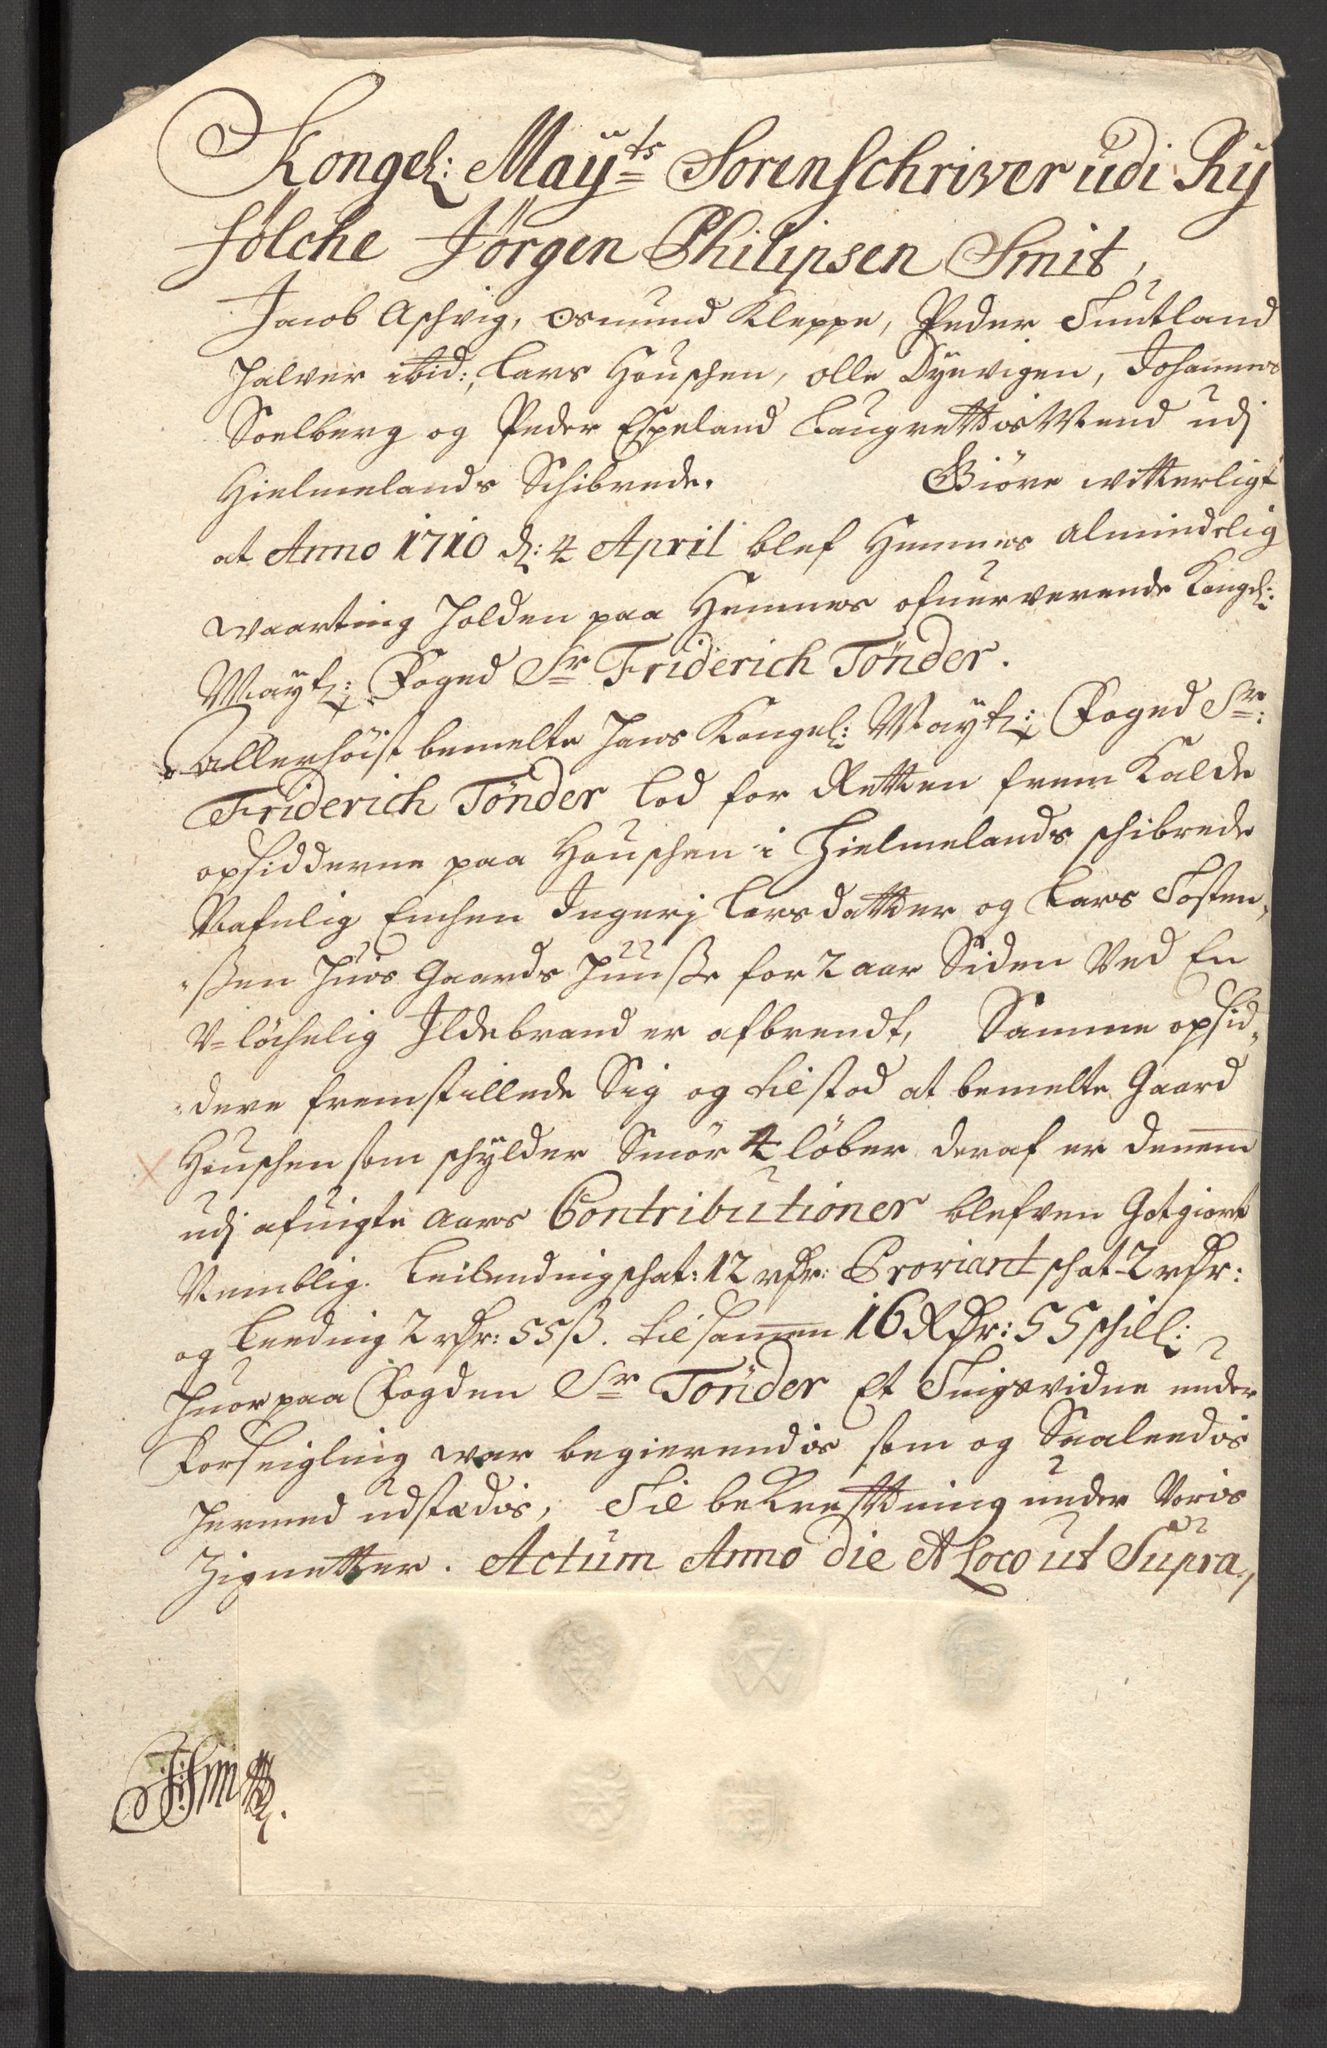 Kongel: May:ts Sorenschriver udi Ry
fölche Jörgen Philipsen Smit,
Jacob Aschvig, Osmund Kleppe, Peder Tuutland
Halver ibid:, Lars Houschen, olle Dyrvigen, Johannes
Soelberg og Peder Espeland LaugrettisMend udj
Hielmelands Schibrede. Giöre witterligt
at Anno 1710 d: 4 April blef Hemnes almindelig
waarting holden paa Hemnes ofuerverende Kongel:
Mayts: Foged Sr Friderich Tönder.
Allerhöist bemelte hans Kongel: Mayts: Foged Sr:
Friderich Tönder lod for Retten frem Kalde
opsidderne paa Houschen i Hielmelands schibrede
Nafnlig Enchen Ingerj Larsdatter og Lars Tosten„
„ßen huis Gaards huuße for 2 aar Siden Ved En
V=löchelig Ildebrand er afbrendt, Samme opsid„
„dere fremstillede Sig og tilstod at bemelte Gaard
Houschen som schylder Smör 4 löber deraf er dennem
udj afuigte Aars Contributioner blefven Gotgiort
Nemblig. Leilendingschat: 12 rdr: Proviant schat 2 rdr:
og Leeding 2 rdr: 55 ß. tilsamen 16 Rdr: 55 schill:
huorpaa Fogden Sr Tönder Et Tingsvidne under
Forseigling war begierendis som og Saaleedis
hermed udstædis, Til bekreftning under Voris
Zignetter. Actum Anno die et Loco ut Supra,
J:Smit